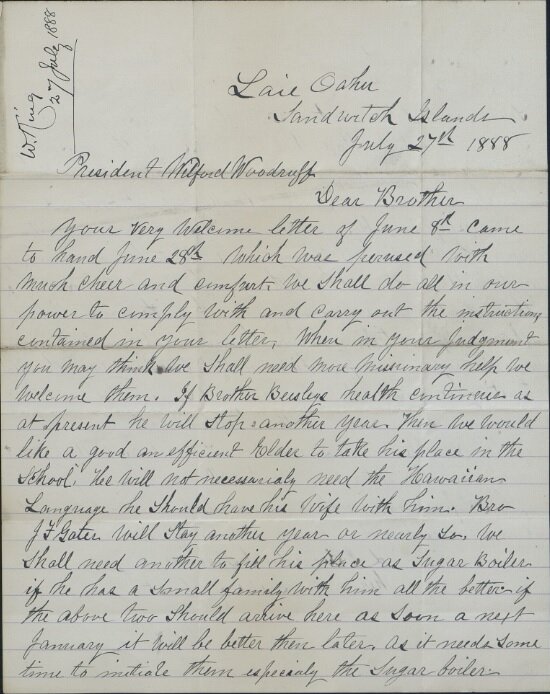 W. King
27 July 1888
Laie Oahu
Sandwitch Islands
July 27th 1888
President Wilford Woodruff
Dear Brother
Your very Welcome letter of June 8th came
to hand June 28th Which was perused with
much cheer and comfort. We Shall do all in our
power to comply with and carry out the instructions
contained in your letter, When in your Judgment
you may think We Shall need more Missionary help we
welcome them. If Brother Beesleys health continues as
at present he will Stop another year. Then We would
like a good an efficient Elder to take his place in the
School. He will not necessarialy need the Hawaiian
Language he Should have his Wife with him. Bro
J F Gates Will Stay another year or nearly So. We
Shall need another to fill his place as Sugar Boiler
if he has a Small family with him all the better if
the above two Should arrive here as Soon a next
January it Will be better then later. as it needs Some
time to initiate them especialy the Sugar boiler.